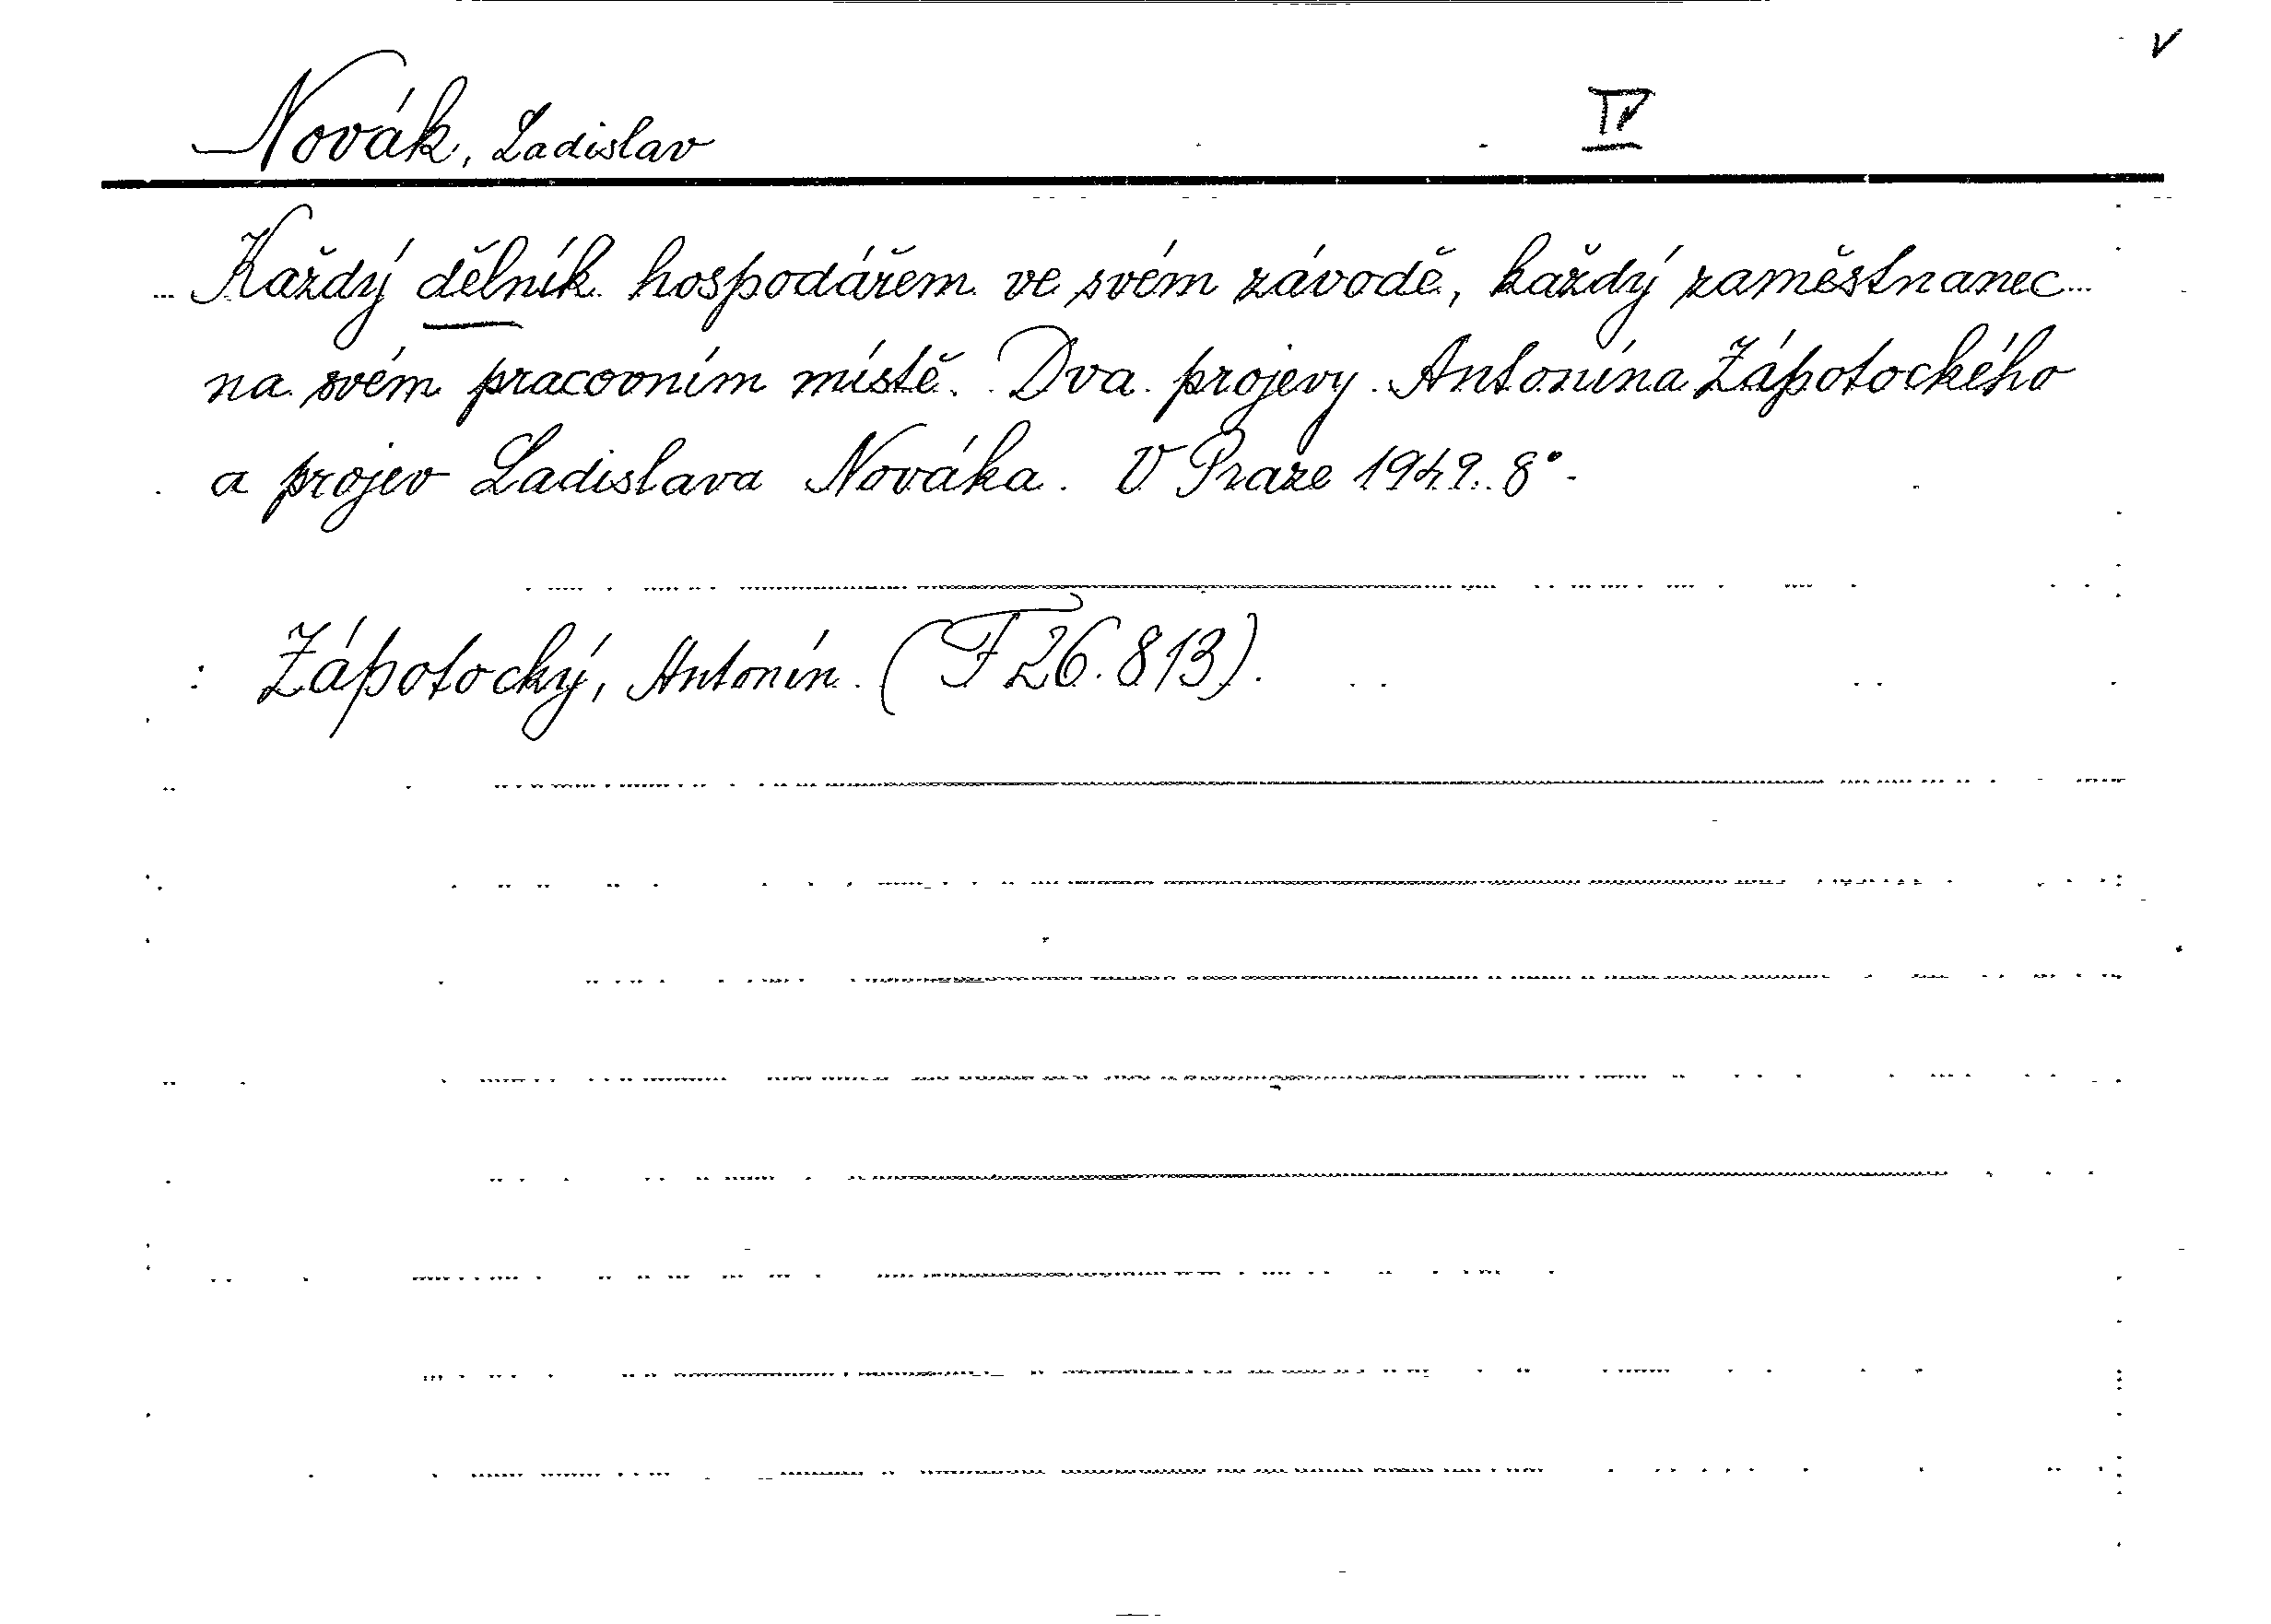 v
Novák, Ladislav IV
Každý dělník hospodářem ve svém závodě, každý zaměstnanec
na svém pracovním místě. Dva projevy Antonína Zápotockého
a projev Ladislava Nováka. V Praze 1949. 8°.
Zápotocký, Antonín. (F 26.813).